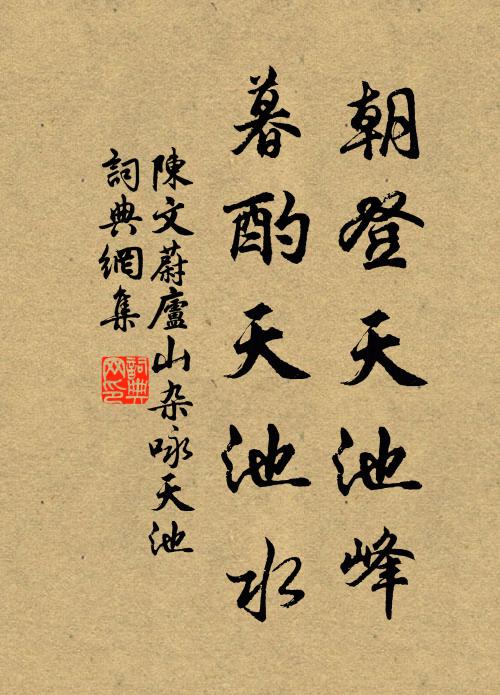 朝登天池峰
暮酌天池水
陳文蔚廬山杂咏天池
詞典網集
詞典網印